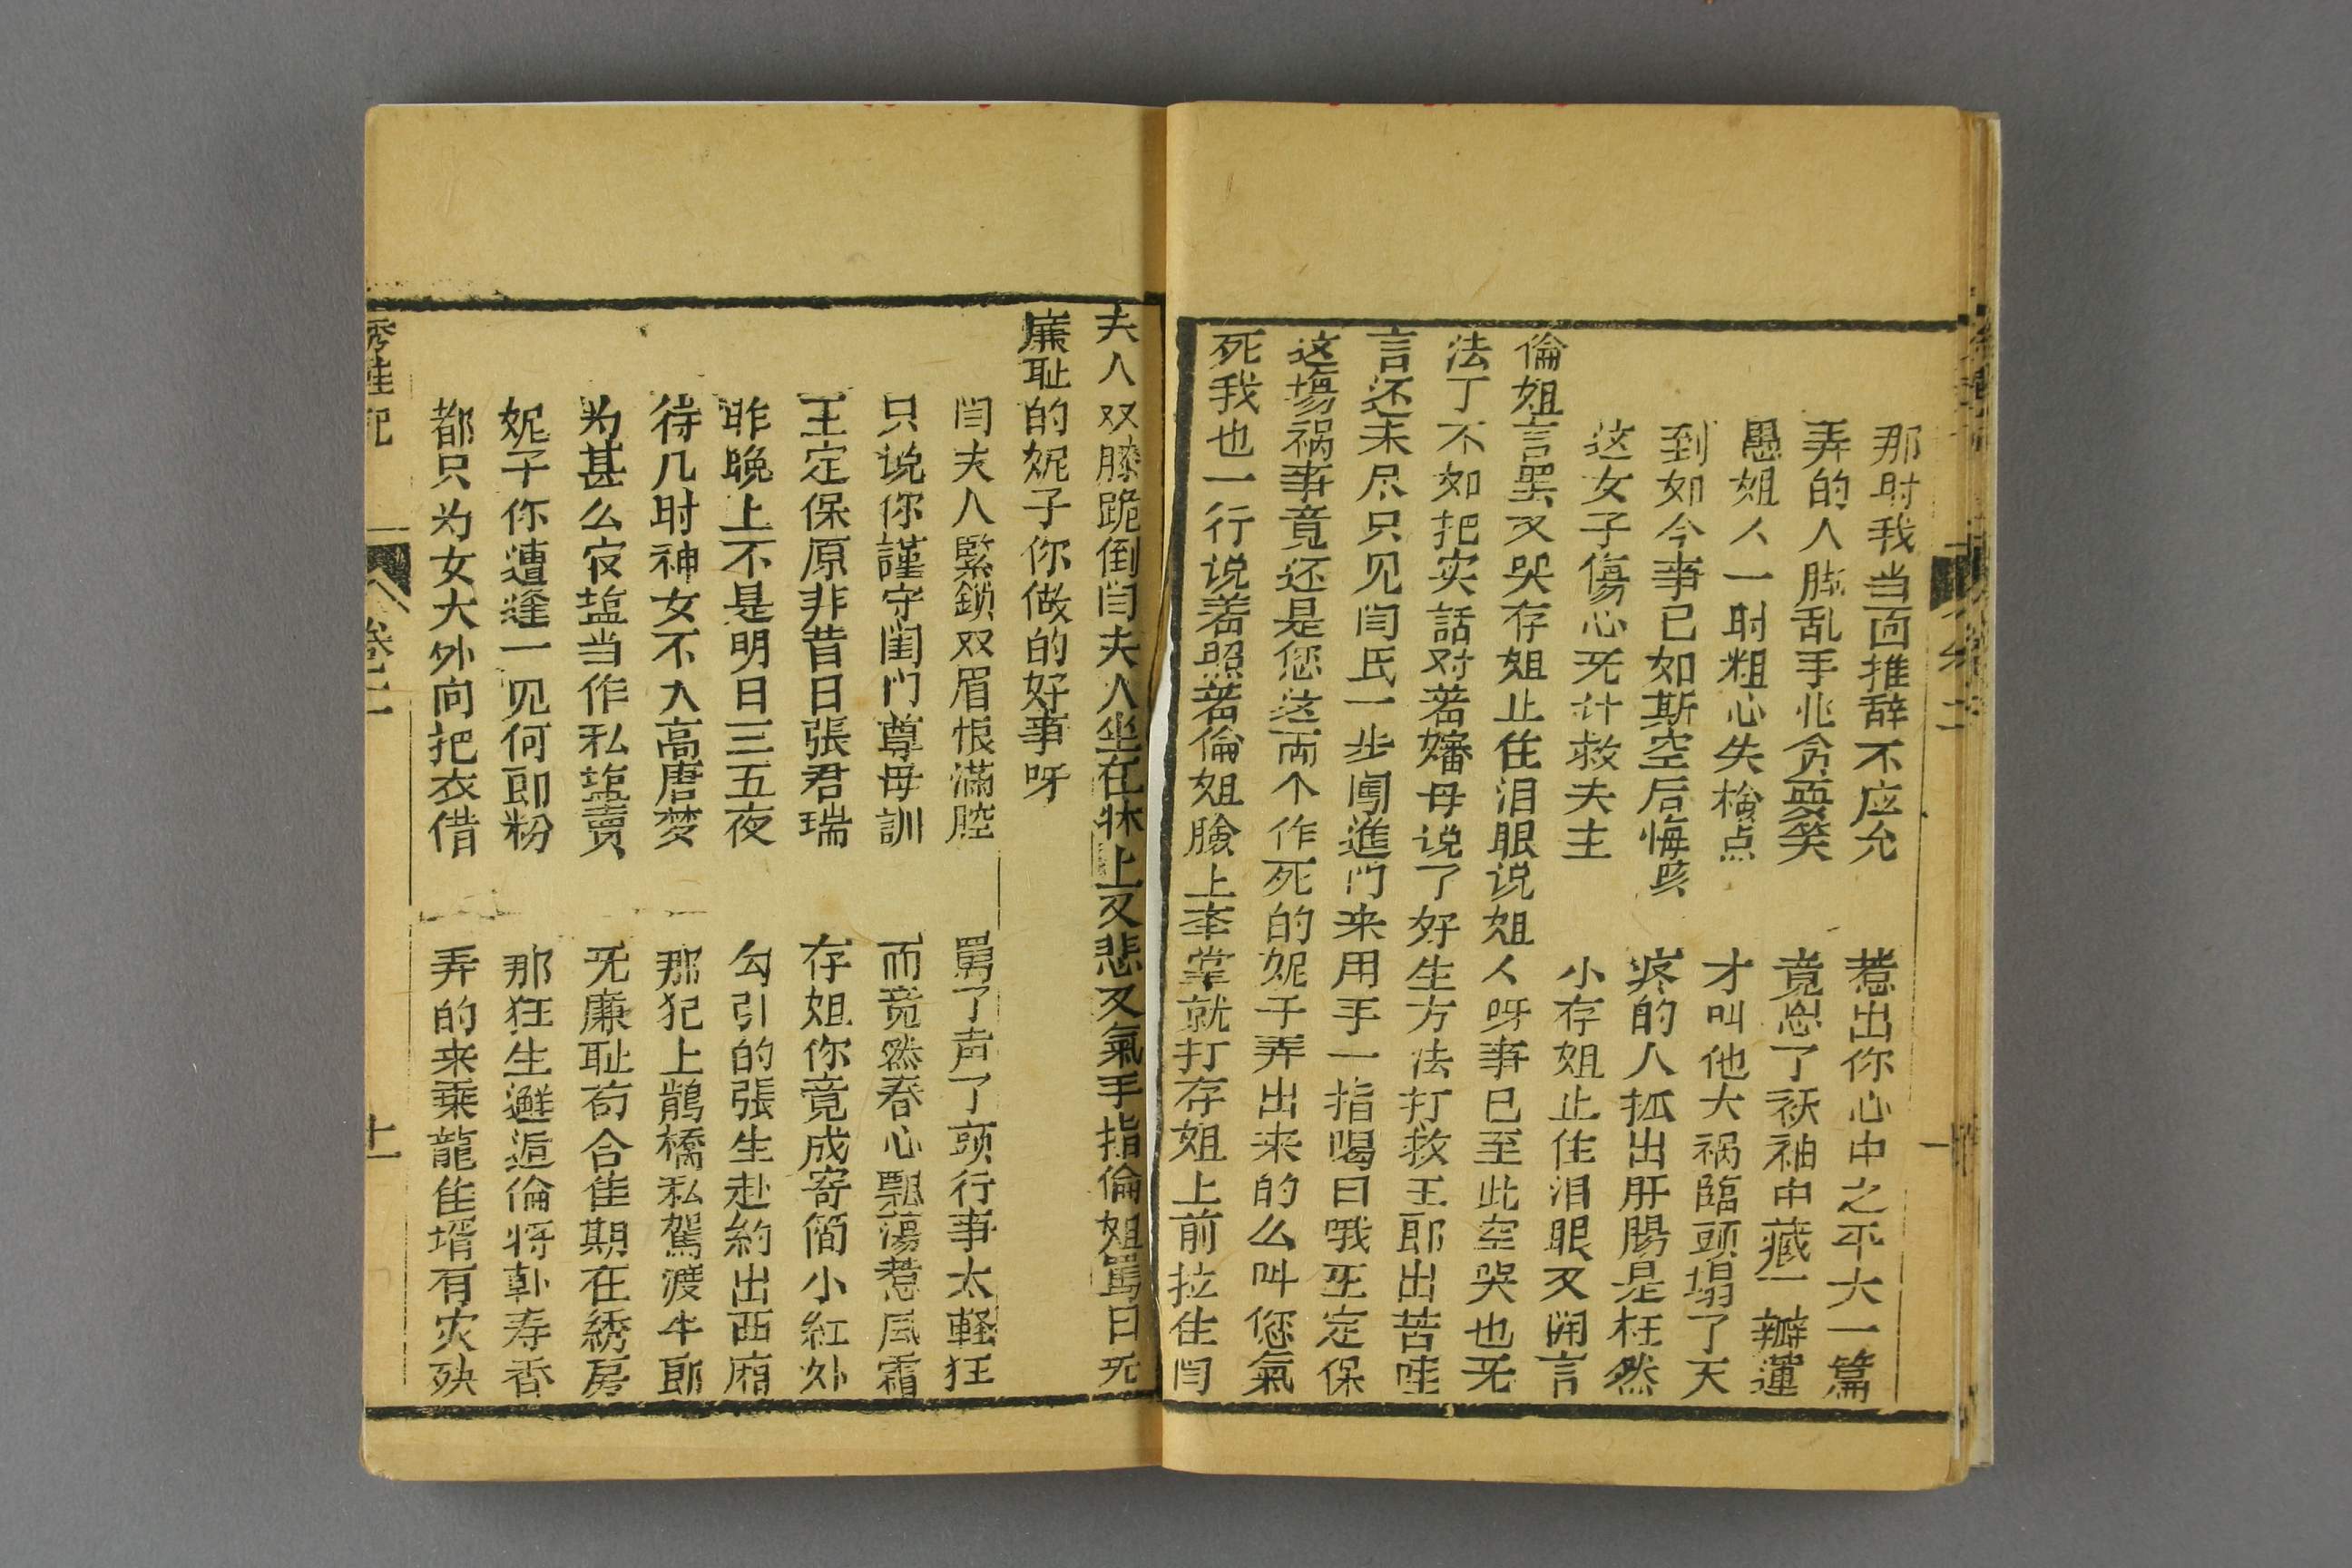 那时我当面推辞不应允　惹出你心中之不大一篇
弄的人脚乱手忙贪耍笑　竟忽了袄袖中藏一瓣蓮
愚姐人一时粗心失檢点　才叫他大祸臨頭塌了天
到如今事已如斯空后悔　疼的人抓出肝腸是枉然
这女子傷心无计救夫主　小存姐止住泪眼又開言
倫姐言罢又哭存姐止住泪眼说姐人呀事已至此空哭也无
法了不如把实話对著嬸母说了好生方法打救王郎出苦哇
言还未尽只见闫氏一步闖進门来用手一指喝曰哦王定保
这塲祸事竟还是您这両个作死的妮子弄出来的么叫您氣
死我也一行说着照著倫姐臉上举掌就打存姐上前拉住闫
夫人双膝跪倒闫夫人坐在牀上又悲又氣手指倫姐罵曰无
廉耻的妮子你做的好事呀
闫夫人緊鎖双眉恨滿腔　罵了声了頭行事太輕狂
只说你謹守闺门尊母訓　而竟然春心飄蕩惹風霜
王定保原非昔日張君瑞　存姐你竟成寄简小紅外
昨晚上不是明日三五夜　勾引的張生赴約出西廂
待几时神女不入高唐梦　那犯上鵲橋私駕渡牛郎
为甚么官塩当作私塩賣　无廉耻苟合佳期在綉房
妮子你遭逢一见何郎粉　那狂生邂逅倫将韩寿香
都只为女大外向把衣借　弄的来乗龍佳壻有灾殃
绣鞋记　卷二　十一